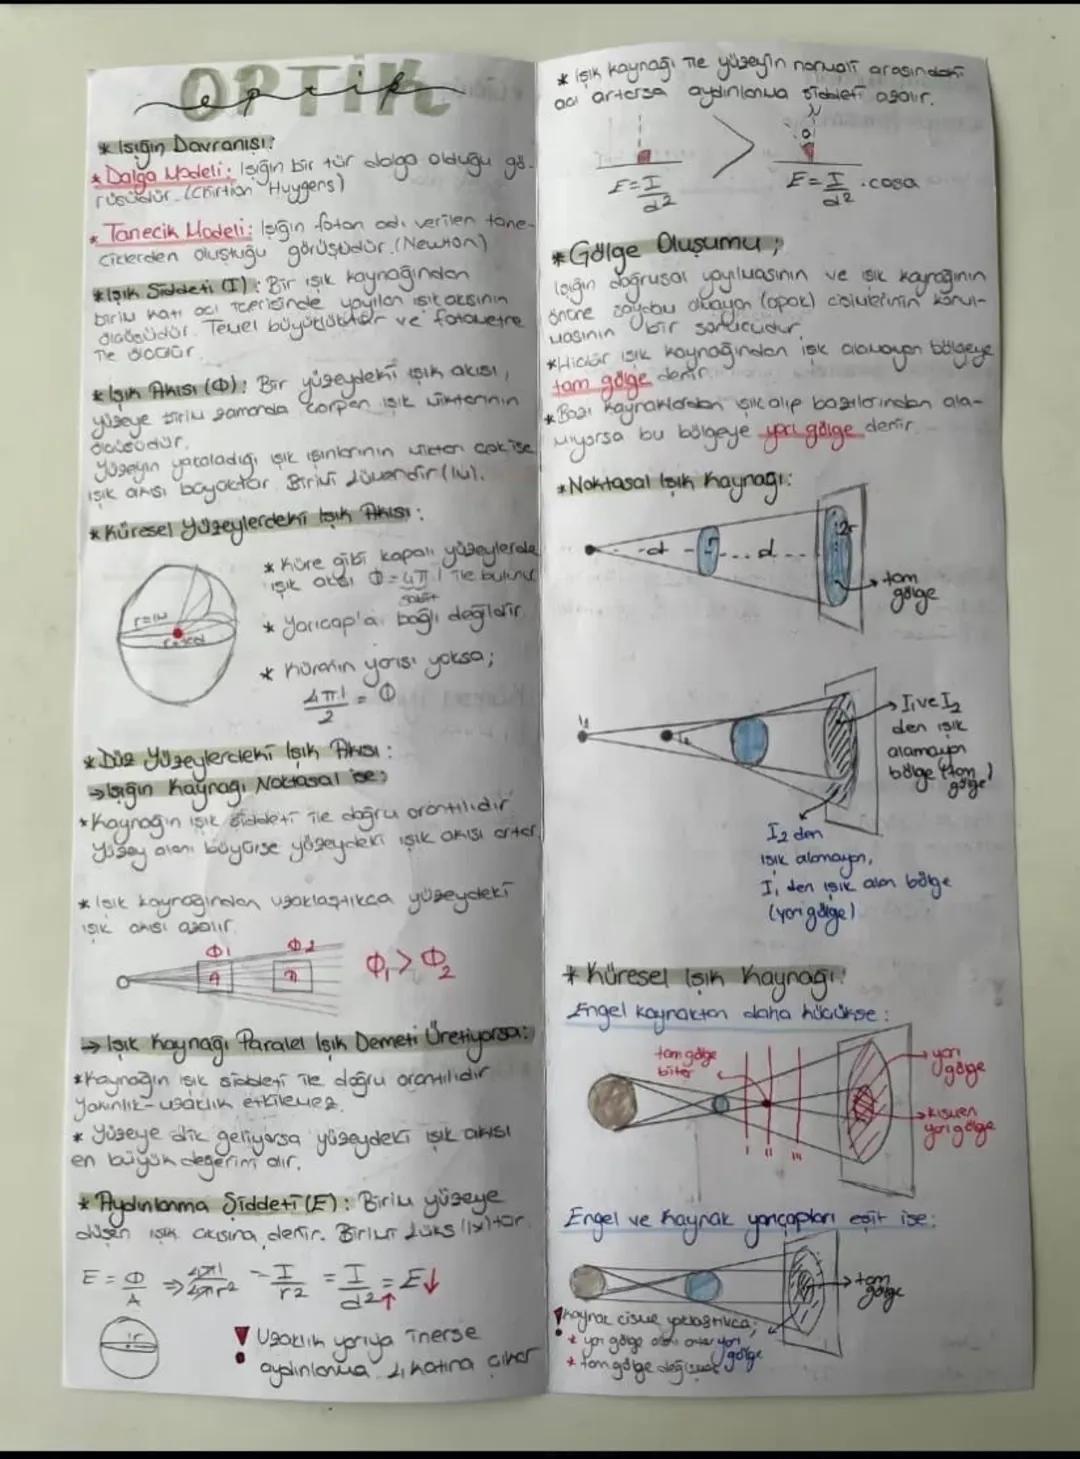 OPTİK
optik
* Işığın Davranışı:
* Dalga Modeli: Işığın bir tür dalga olduğu gö-
rüşüdür. (Chirtian Huygens)
* Tanecik Modeli: Işığın foton adı verilen tane-
ciklerden oluştuğu görüşüdür. (Newton)
* Işık Şiddeti (I): Bir ışık kaynağından
birim katı açı içerisinde yayılan ışık akısının
ölçüsüdür. Temel büyüklüktür ve fotometre
ile ölçülür.
* Işık Akısı (Φ): Bir yüzeydeki ışık akısı,
yüzeye birim zamanda çarpan ışık miktarının
ölçüsüdür.
Yüzeyin yakaladığı ışık ışınlarının miktarı çok ise
ışık akısı büyüktür. Birimi lümendir (lm).
* Küresel Yüzeylerdeki Işık Akısı:
* Küre gibi kapalı yüzeylerde
ışık akısı Φ = 4π I ile bulunur
sabit
* Yarıçap'a bağlı değildir.
* Kürenin yarısı yoksa;
4πI / 2 = Φ
* Düz Yüzeylerdeki Işık Akısı:
→ Işığın Kaynağı Noktasal ise;
* Kaynağın ışık şiddeti ile doğru orantılıdır
Yüzey alanı büyürse yüzeydeki ışık akısı artar.
* Işık kaynağından uzaklaştıkça yüzeydeki
ışık akısı azalır.
Φ1 Φ2
A A
Φ1 > Φ2
→ Işık Kaynağı Paralel Işık Demeti Üretiyorsa:
* Kaynağın ışık şiddeti ile doğru orantılıdır
Yakınlık-uzaklık etkilemez.
* Yüzeye dik geliyorsa yüzeydeki ışık akısı
en büyük değerini alır.
* Aydınlanma Şiddeti (E): Birim yüzeye
düşen ışık akısına denir. Birimi lüks (lx)'tür.
E = Φ / A ⇒ 4πI / 4πr2 = I / r2 = I / d2↑ = E↓
r
! Uzaklık yarıya inerse
aydınlanma 4 katına çıkar
* Işık kaynağı ile yüzeyin normali arasındaki
açı artarsa aydınlanma şiddeti azalır.
N
E = I / d2 > E = I / d2 . cosα
* Gölge Oluşumu;
Işığın doğrusal yayılmasının ve ışık kaynağının
önüne saydam olmayan (opak) cisimlerinin konul-
masının bir sonucudur.
* Hiçbir ışık kaynağından ışık alamayan bölgeye
tam gölge denir.
* Bazı kaynaklardan ışık alıp bazılarından ala-
mıyorsa bu bölgeye yarı gölge denir.
* Noktasal Işık Kaynağı:
d r d 2r
tam
gölge
I1 I2
I1 ve I2
den ışık
alamayan
bölge (tam
gölge)
I2 den
ışık alamayan,
I1 den ışık alan bölge
(yarı gölge)
* Küresel Işık Kaynağı:
Engel kaynaktan daha küçükse:
tam gölge
biter
yarı
gölge
kısmen
yarı gölge
I II III
Engel ve Kaynak yarıçapları eşit ise:
tam
gölge
yarı
gölge
! Kaynak cisme yaklaştıkca;
* yarı gölge alanı artar
* tam gölge değişmez